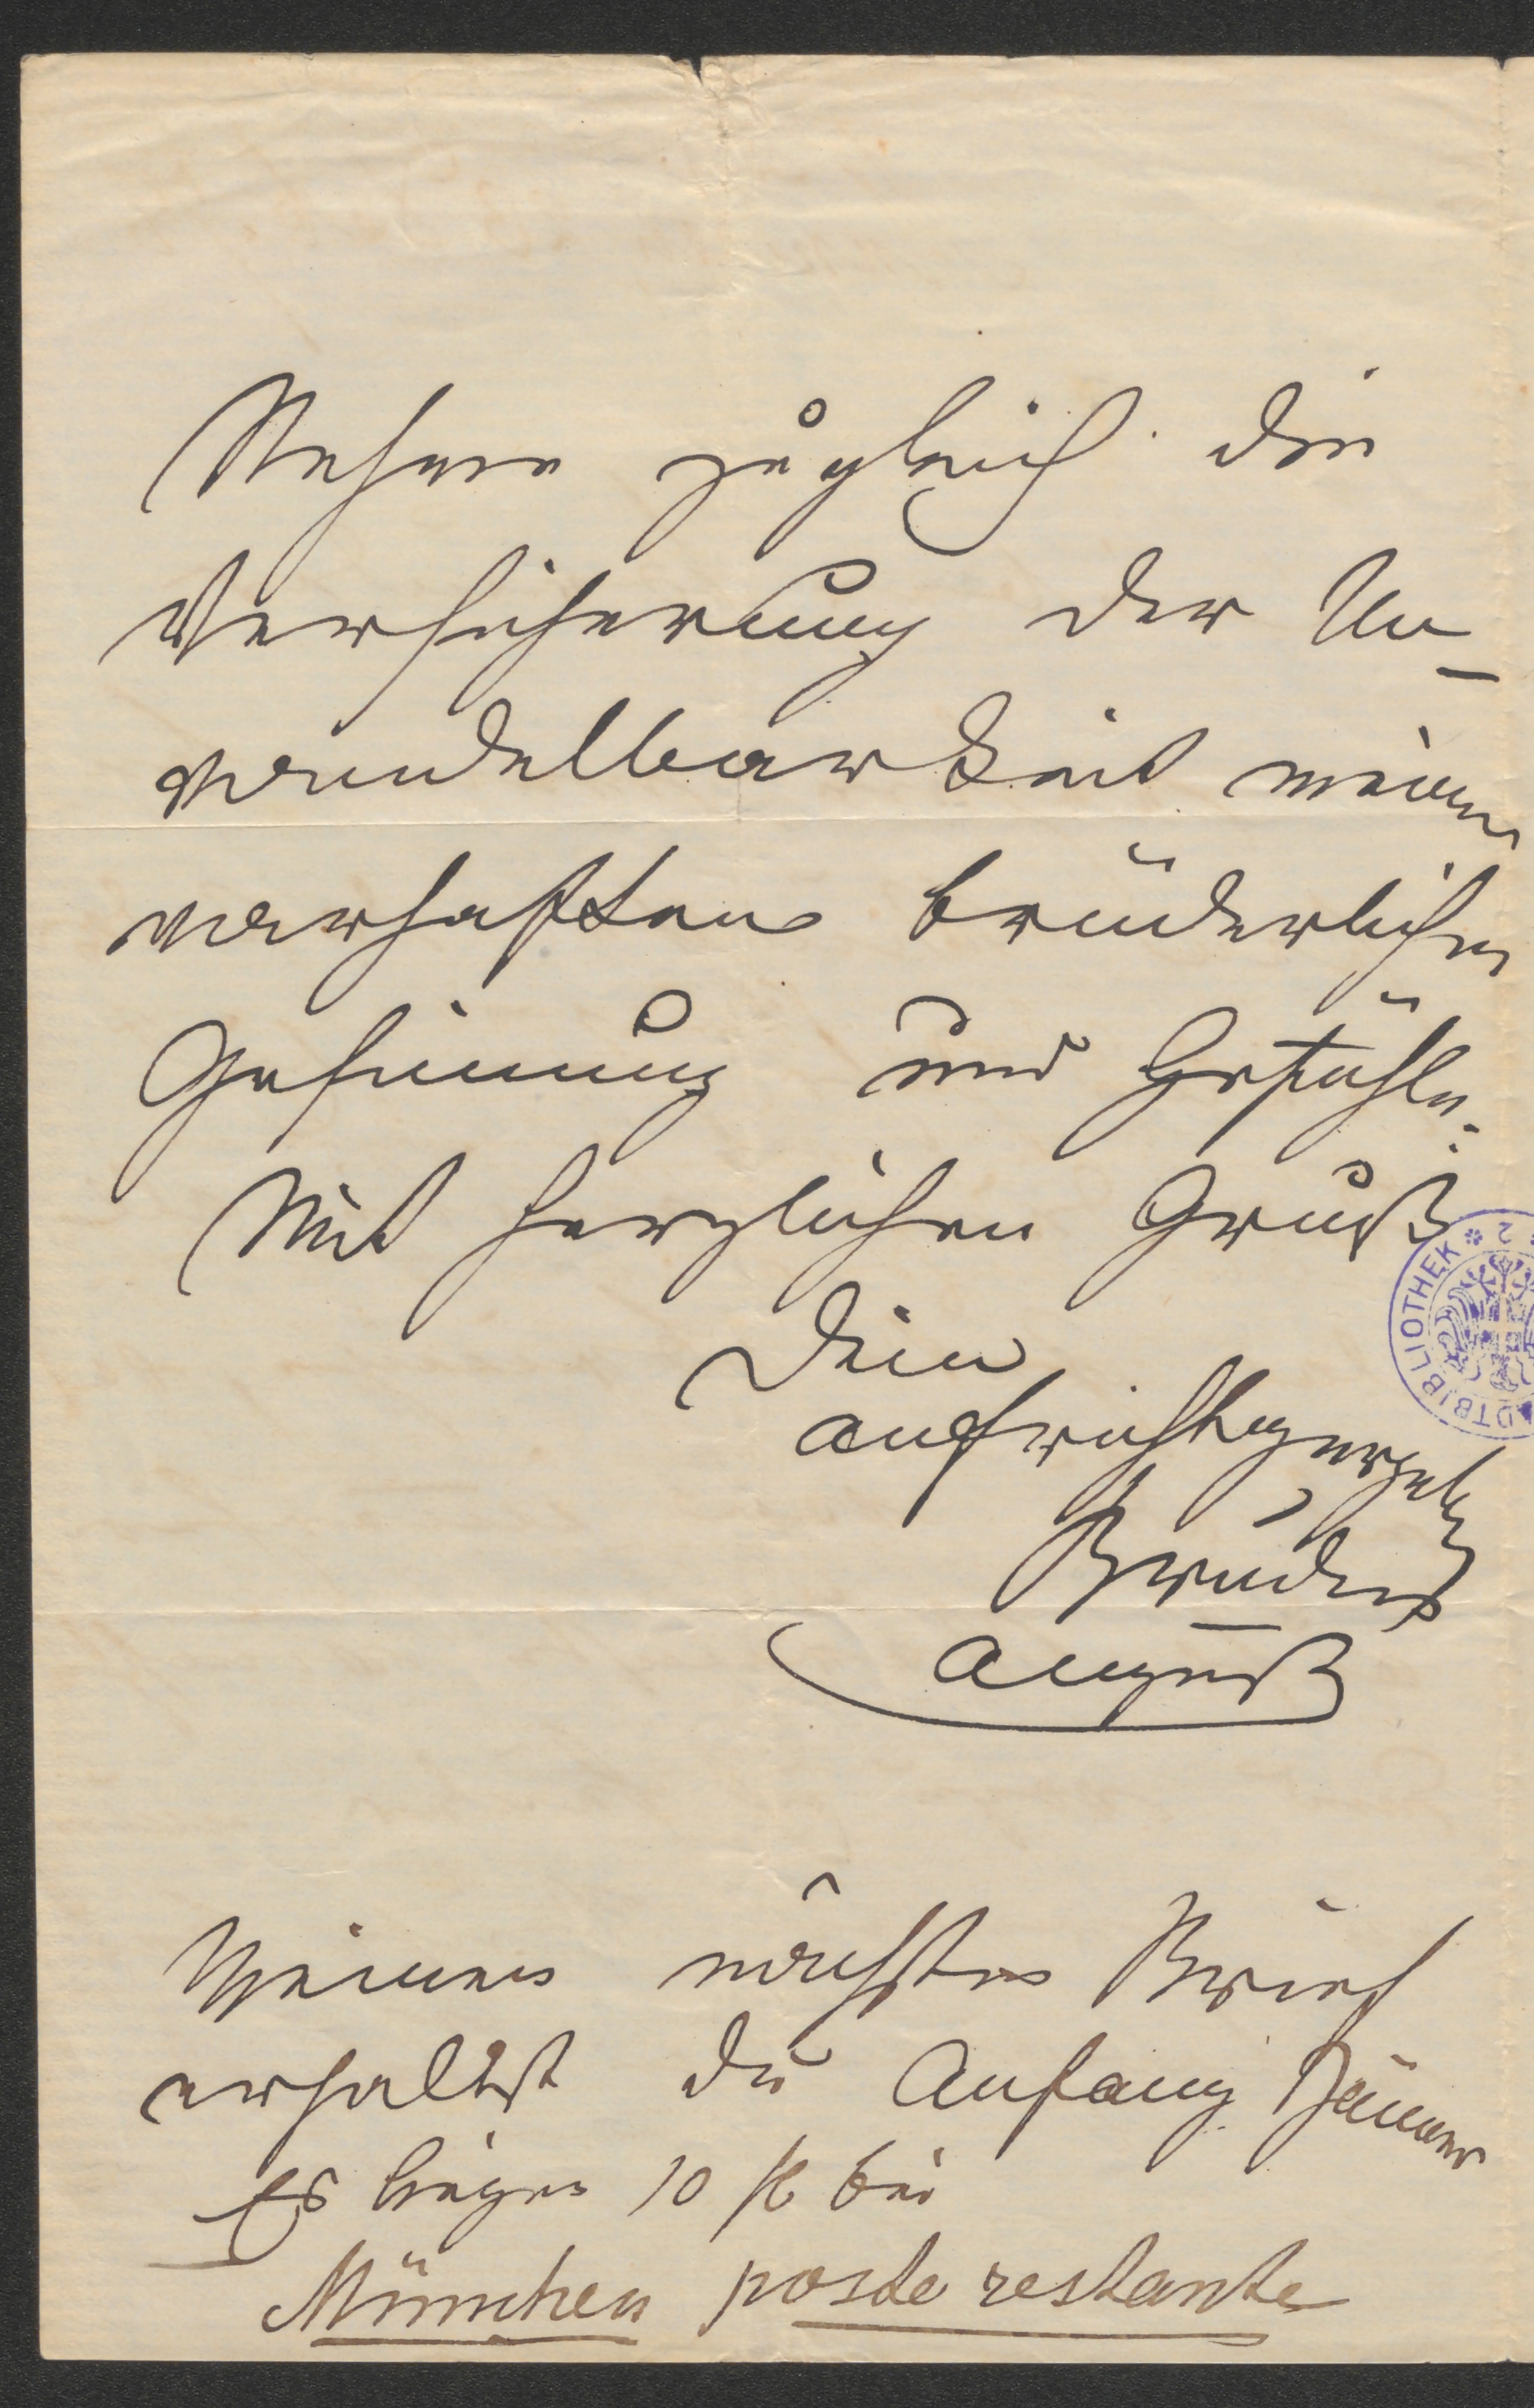 Nehme zugleich die
Versicherung der Un-
wandelbarkeit meiner
warhaften brüderlichen
Gesinnung und Gefühle.
Mit herzlichen Gruß
Dein
aufrichtig ergeb
Bruder
August
Meinen nächsten Brief
erhaltst du Anfang Jänner
Es liegen 10 fl bei
München poste restante
DTBIBLIOTHEK * 2 *